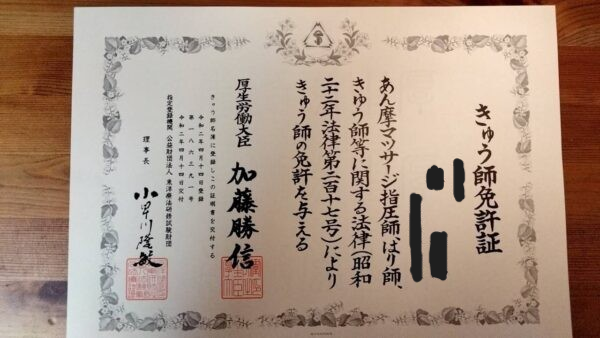 きゅう師免許証
あん摩マツサージ指圧師、はり師、
きゅう師等に関する法律（昭和
二十二年法律第二百十七号）により
きゅう師の免許を与える
厚生労働大臣　加藤勝信
きゅう師名簿に登録しこの証明書を交付する
令和二年四月十四日登録
第一八六三九一号
令和二年四月十四日交付
指定登録機関　公益財団法人　東洋療法研修試験財団
理事長　小早川隆敏